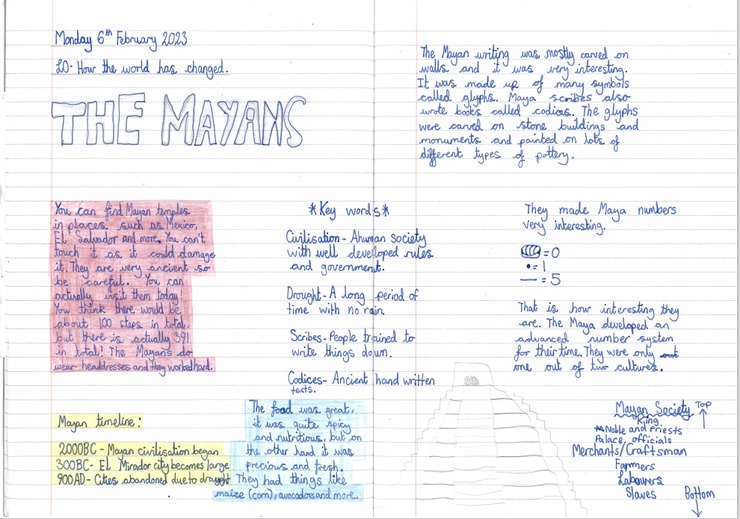 Monday 6th February 2023
LO- How the world has changed.
THE MAYANS
You can find Mayan temples
in places such as Mexico,
El Salvador and more. You can't
touch it as it could damage
it. They are very ancient so
be careful. You can
actually visit them today!
You think there would be
about 100 steps in total.
but there is actually 391
in total! The Mayans do
wear headdresses and they worked hard.
Mayan timeline:
2000BC- Mayan civilisation began
300BC- El Mirador city becomes large
900AD- Cities abandoned due to drought
*Key words*
Civilisation- A human society
with well developed rules
and government.
Drought- A long period of
time with no rain.
Scribes- People trained to
write things down.
Codices- Ancient hand written
texts.
The food was great,
it was quite spicy
and nutritious, but on
the other hand it was
precious and fresh.
They had things like
maize (corn), avocados and more.
The Mayan writing was mostly carved on
walls and it was very interesting.
It was made up of many symbols
called glyphs. Maya scribes also
wrote books called codices. The glyphs
were carved on stone buildings and
monuments and painted on lots of
different types of pottery.
They made Maya numbers
very interesting.
=0
• = 1
— = 5
That is how interesting they
are. The Maya developed an
advanced number system
for their time. They were only
one out of two cultures.
Mayan Society Top
King
Noble and Priests
Palace, officials
Merchants/Craftsman
Farmers
Labourers
Slaves Bottom